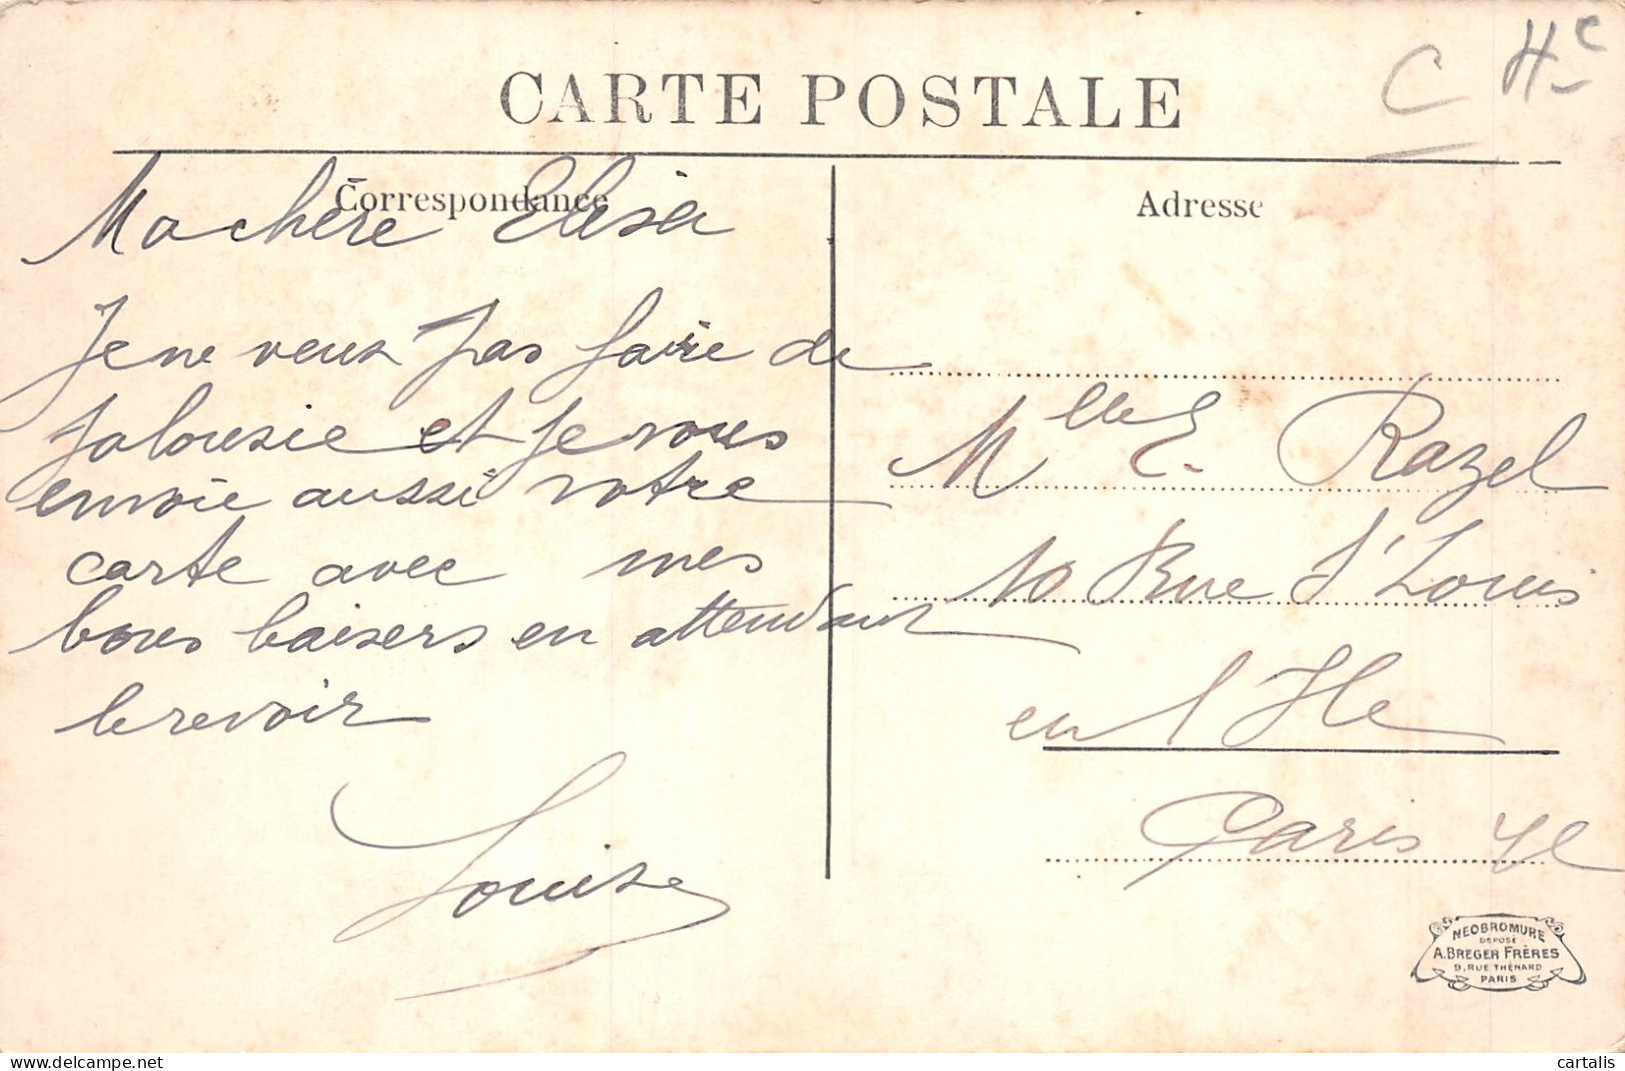 C Hc
CARTE POSTALE
Correspondance
Ma chère Elisa
Je ne veux pas faire de
jalousie et je vous
envoie aussi votre
carte avec mes
bons baisers en attendant
le revoir
Louise
Adresse
Mlle E. Razel
10 Rue St Louis
en l'Ile
Paris 4e
NEOBROMURE
DEPOSÉ
A. BREGER FRÈRES
9, RUE THÉNARD
PARIS
cartalis